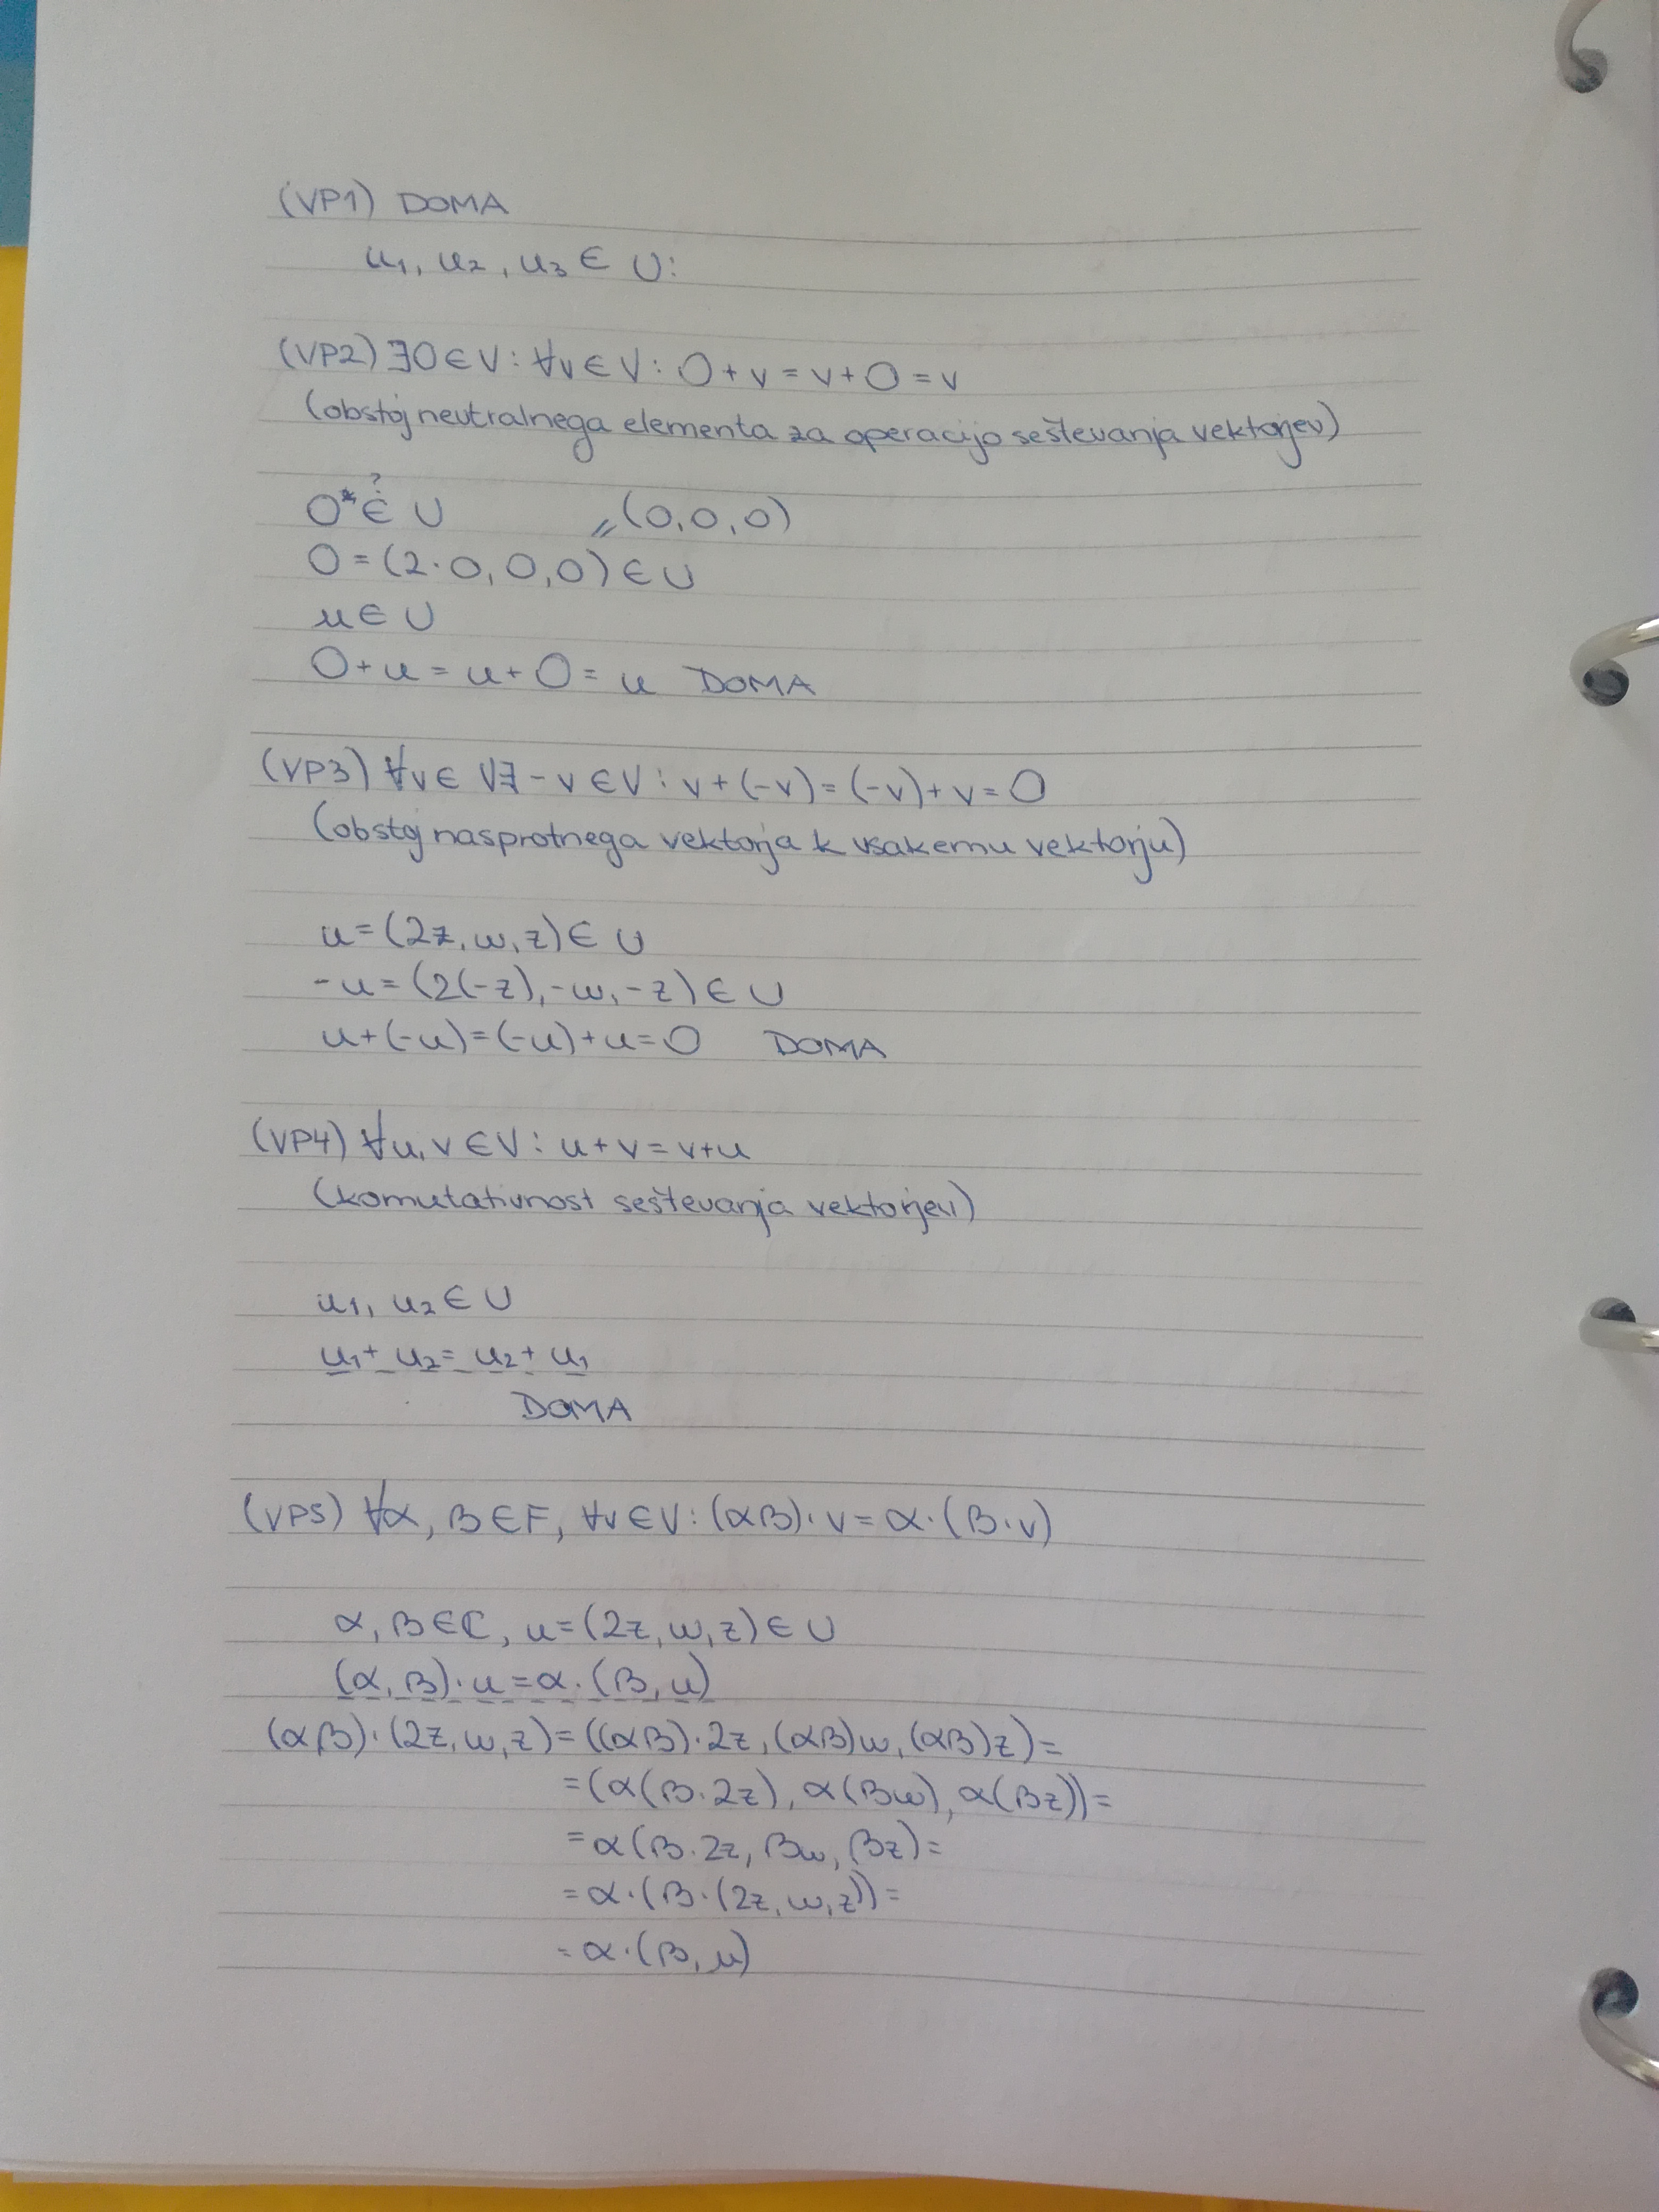 (VP1) DOMA
u₁, u₂, u₃ ∈ U:
(VP2) ∃0 ∈ V : ∀v ∈ V : 0 + v = v + 0 = v
(obstoj neutralnega elementa za operacijo seštevanja vektorjev)
0* ?∈ U
〃(0,0,0)
0 = (2·0, 0, 0) ∈ U
u ∈ U
0 + u = u + 0 = u DOMA
(VP3) ∀v ∈ V ∃ -v ∈ V : v + (-v) = (-v) + v = 0
(obstoj nasprotnega vektorja k vsakemu vektorju)
u = (2z, w, z) ∈ U
-u = (2(-z), -w, -z) ∈ U
u + (-u) = (-u) + u = 0 DOMA
(VP4) ∀u, v ∈ V : u + v = v + u
(komutativnost seštevanja vektorjev)
u₁, u₂ ∈ U
u₁ + u₂ = u₂ + u₁
DOMA
(VP5) ∀α, β ∈ F, ∀v ∈ V : (αβ)·v = α·(β·v)
α, β ∈ ℂ, u = (2z, w, z) ∈ U
(α, β)·u = α·(β, u)
(αβ)·(2z, w, z) = ((αβ)·2z, (αβ)w, (αβ)z) =
= (α(β·2z), α(βw), α(βz)) =
= α(β·2z, βw, βz) =
= α·(β·(2z, w, z)) =
= α·(β, u)